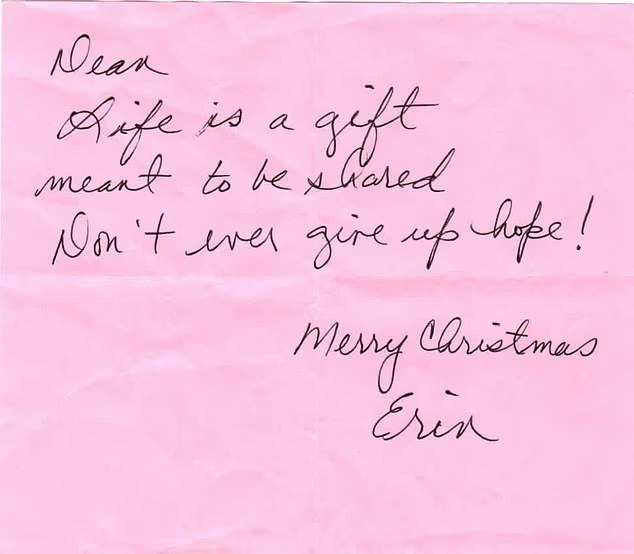 Dean
Life is a gift
meant to be shared
Don't ever give up hope!
Merry Christmas
Erin